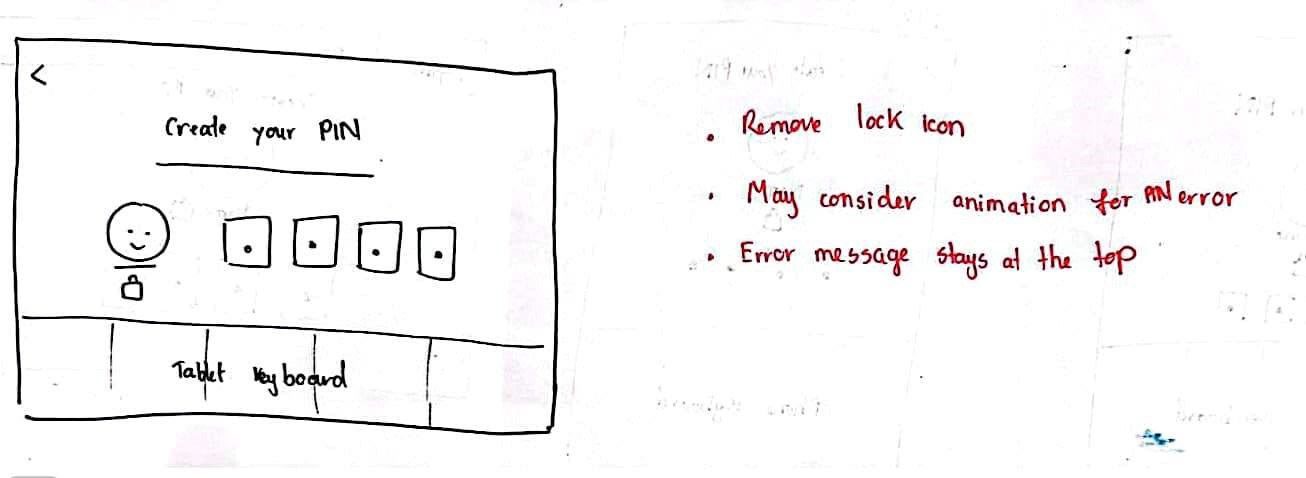 <
Create your PIN
Tablet Keyboard
• Remove lock icon
• May consider animation for PIN error
• Error message stays at the top